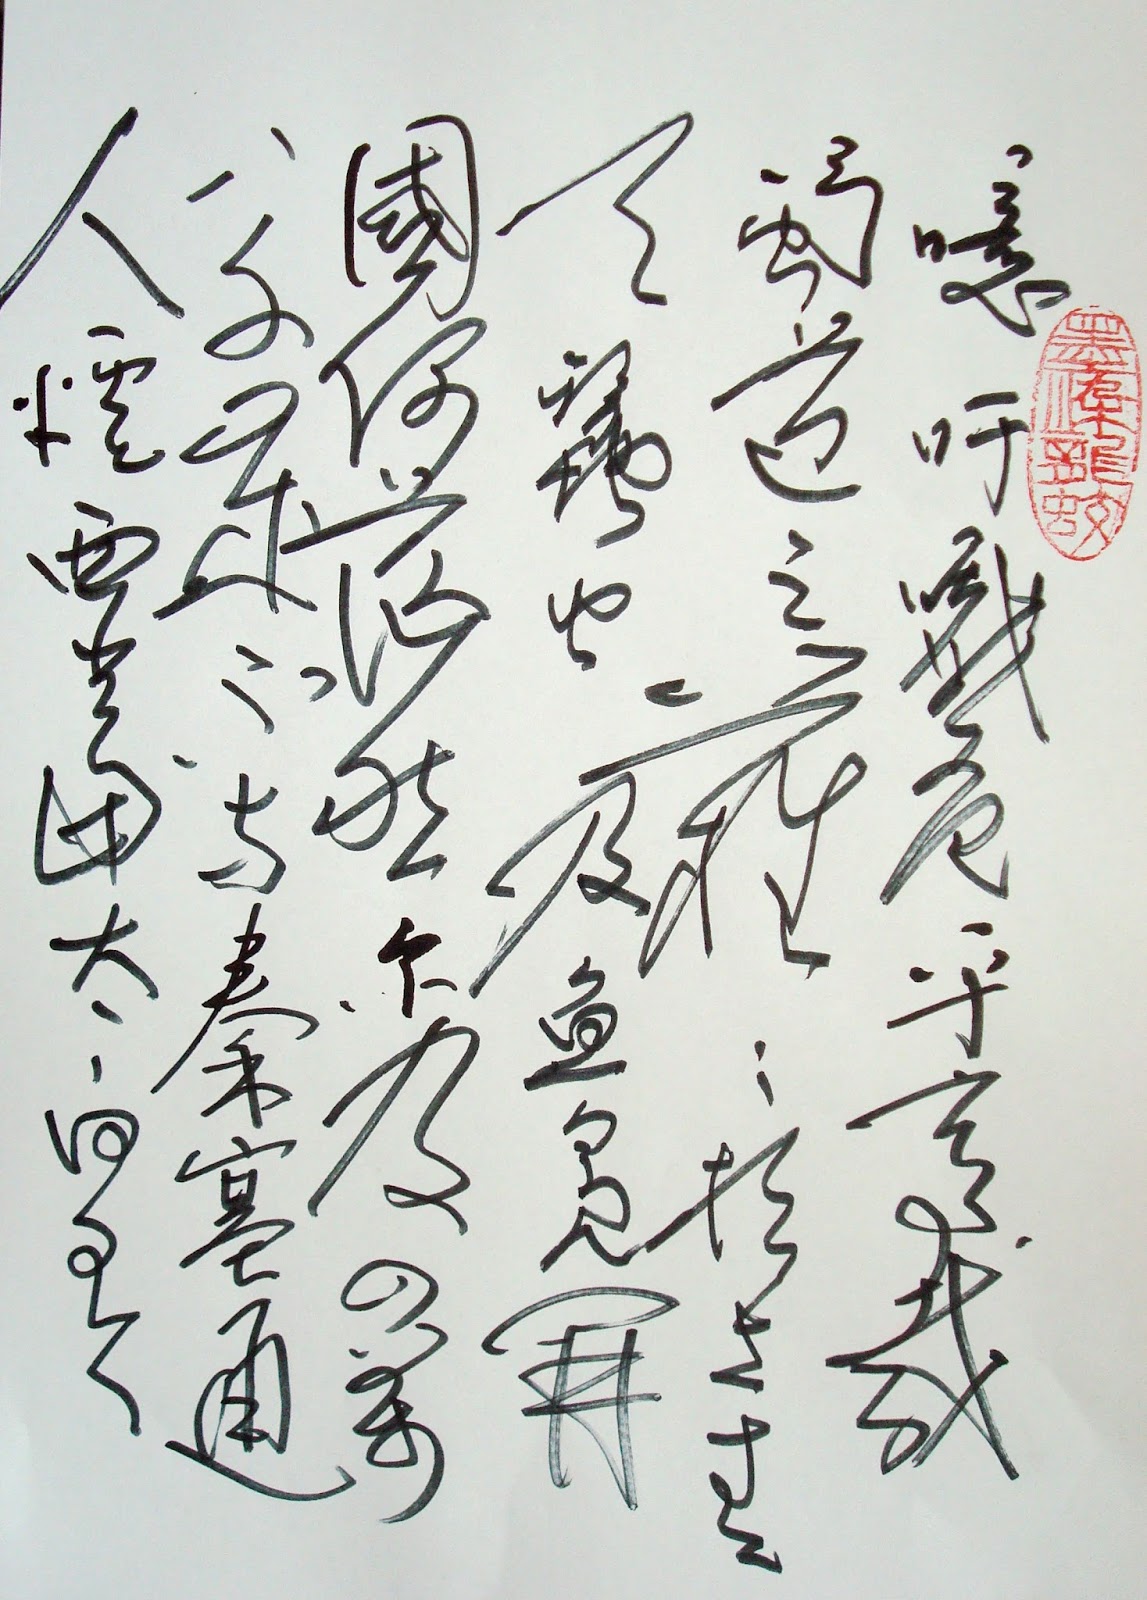 噫吁戲危乎高哉
蜀道之難々於上青
天蠶叢及魚鳧開
國何茫然尔來四萬
八千歲不与秦塞通
人煙西當太白有鳥